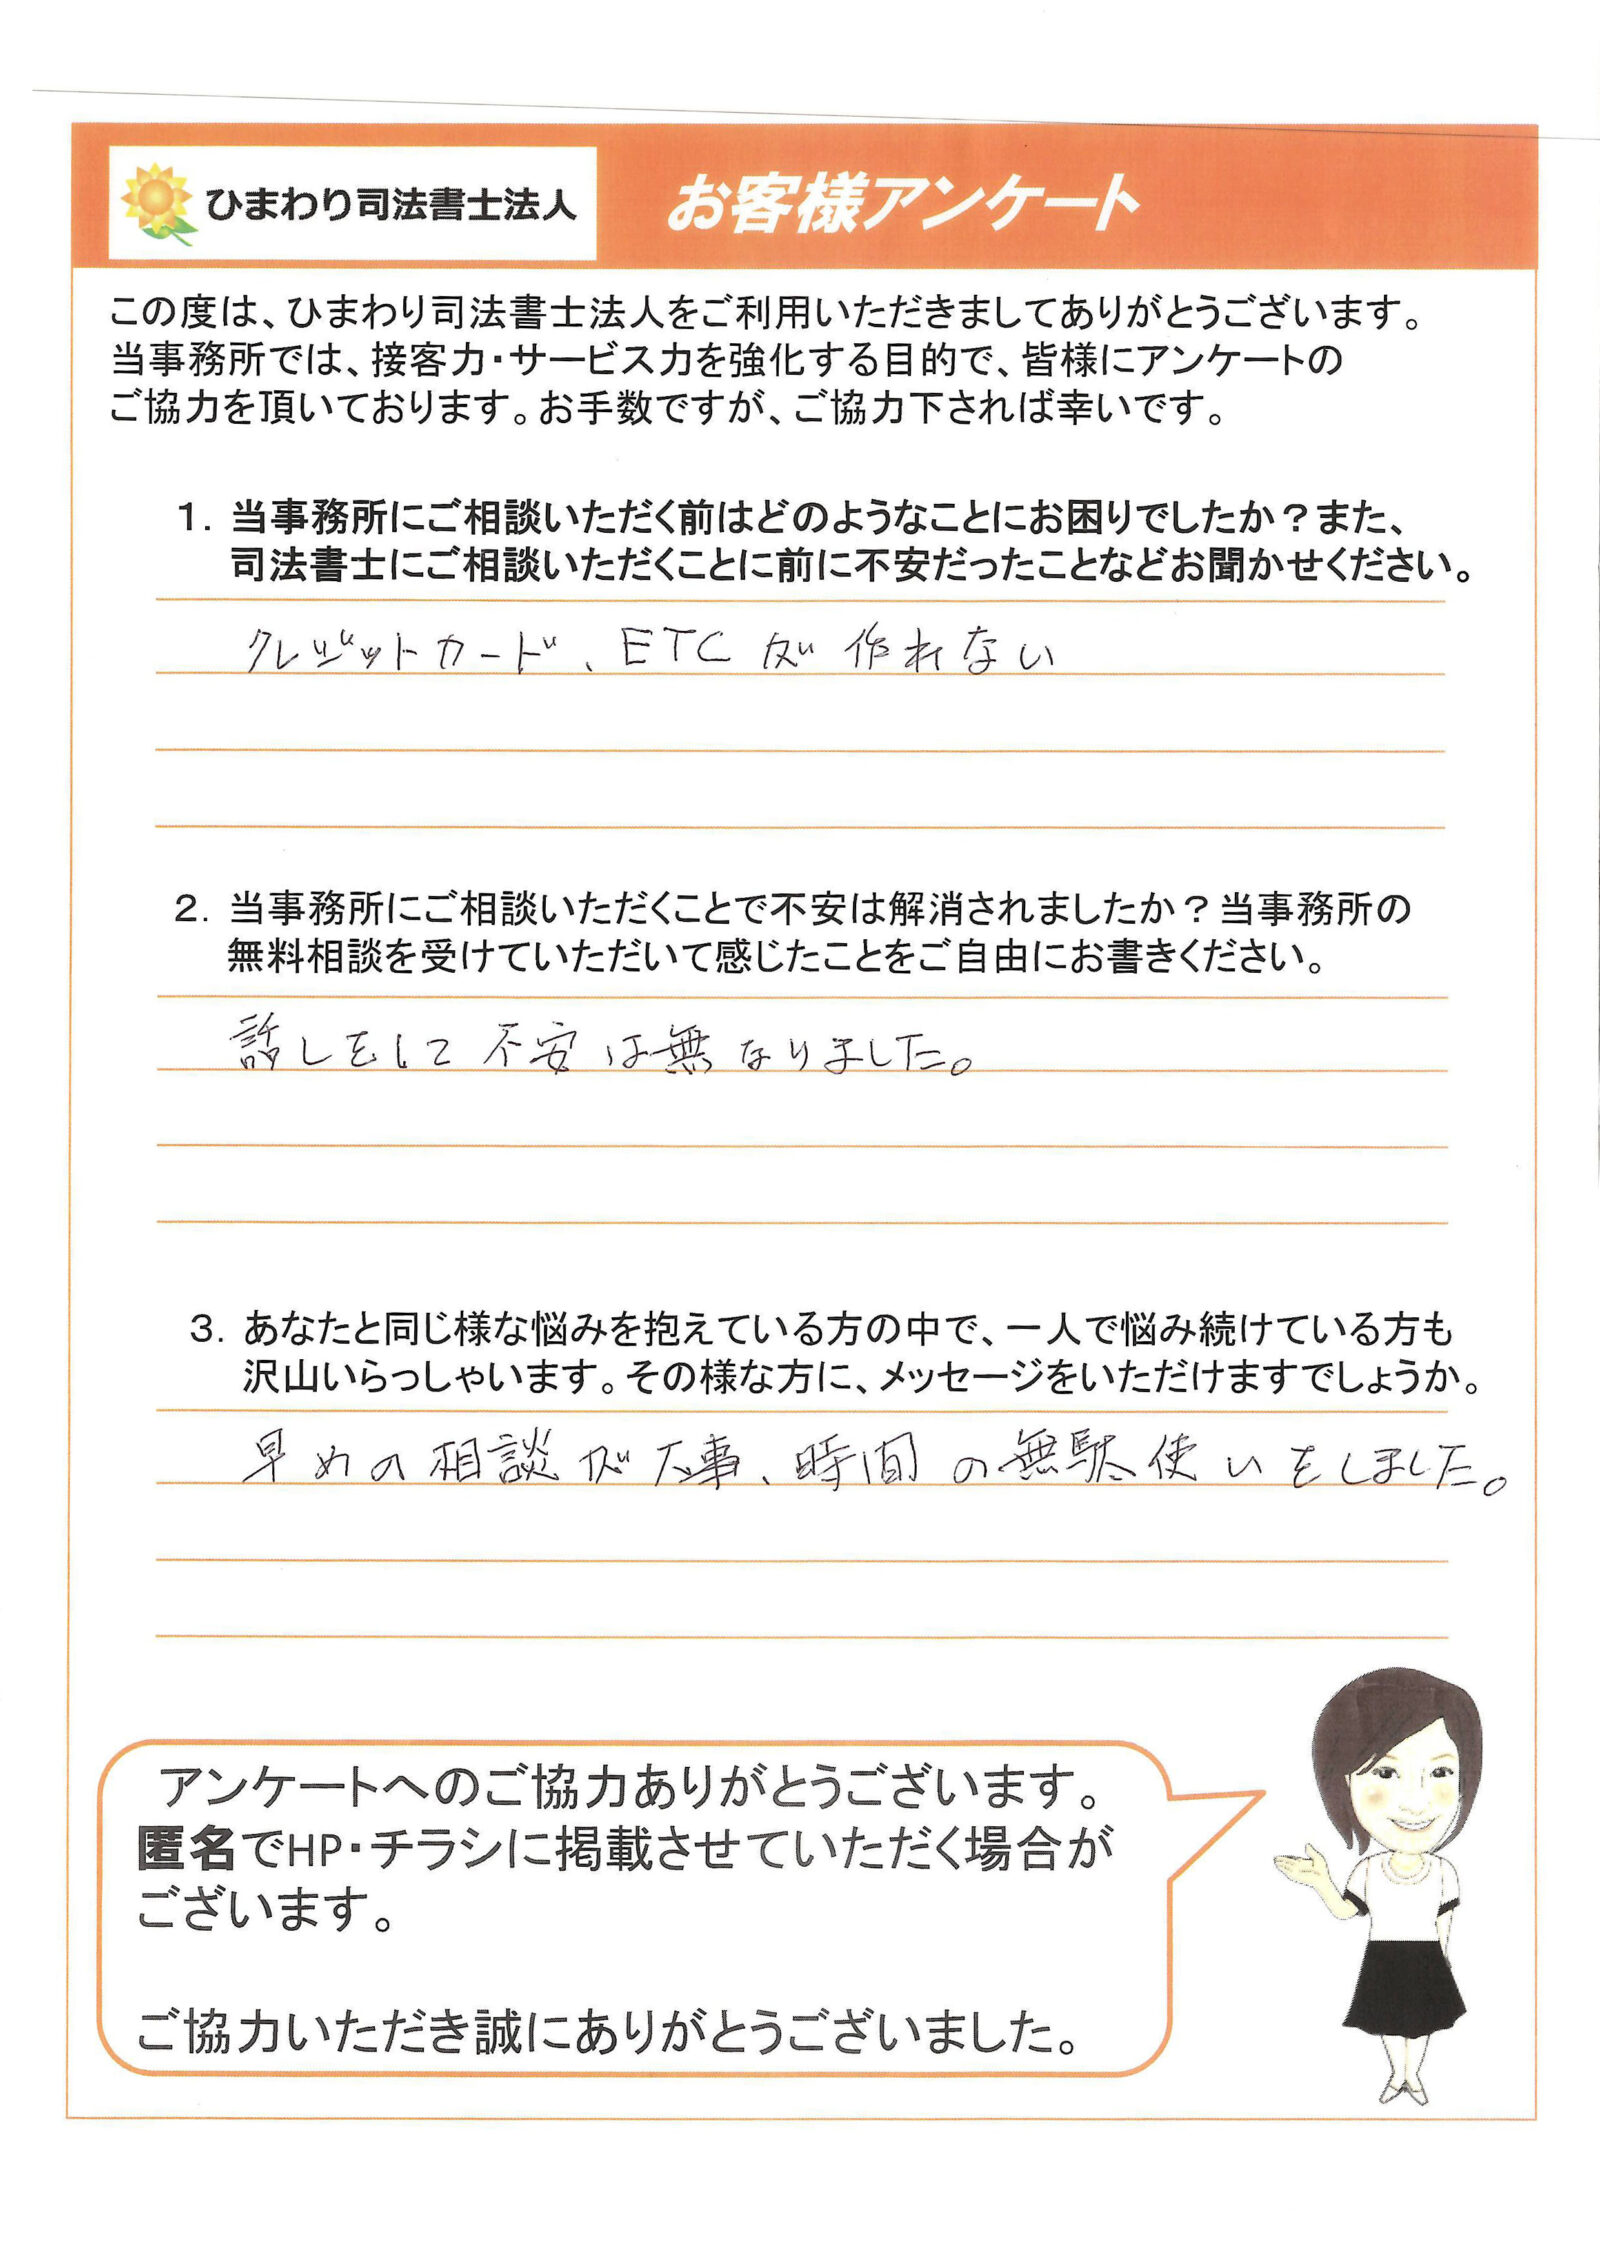 ひまわり司法書士法人
お客様アンケート
この度は、ひまわり司法書士法人をご利用いただきましてありがとうございます。
当事務所では、接客力・サービス力を強化する目的で、皆様にアンケートの
ご協力を頂いております。お手数ですが、ご協力下されば幸いです。
1. 当事務所にご相談いただく前はどのようなことにお困りでしたか？また、
司法書士にご相談いただくことに前に不安だったことなどお聞かせください。
クレジットカード、ETCが作れない
2. 当事務所にご相談いただくことで不安は解消されましたか？当事務所の
無料相談を受けていただいて感じたことをご自由にお書きください。
話しをして不安は無なりました。
3. あなたと同じ様な悩みを抱えている方の中で、一人で悩み続けている方も
沢山いらっしゃいます。その様な方に、メッセージをいただけますでしょうか。
早めの相談が大事、時間の無駄使いをしました。
アンケートへのご協力ありがとうございます。
匿名でHP・チラシに掲載させていただく場合が
ございます。
ご協力いただき誠にありがとうございました。